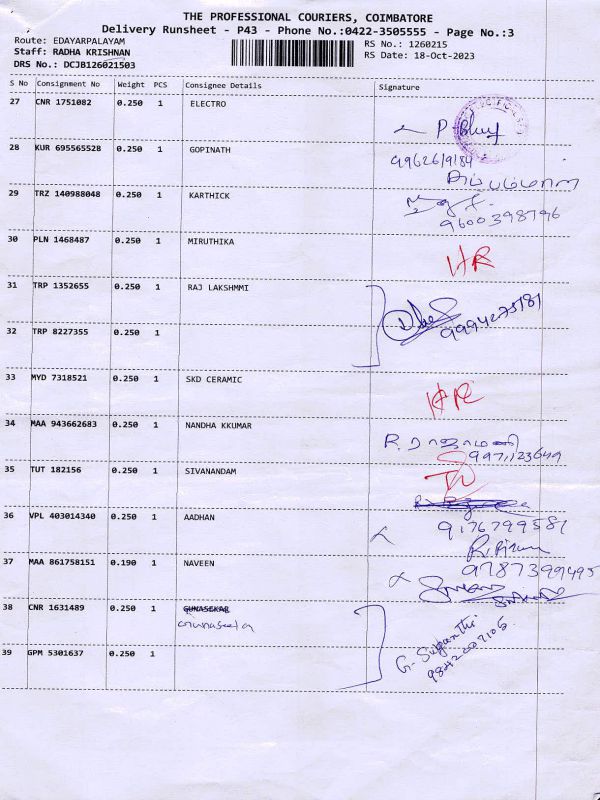 THE PROFESSIONAL COURIERS, COIMBATORE
Delivery Runsheet - P43 - Phone No.:0422-3505555 - Page No.:3
Route: EDAYARPALAYAM
Staff: RADHA KRISHNAN
DRS No.: DCJB126021503
RS No.: 1260215
RS Date: 18-Oct-2023
S No Consignment No Weight PCS Consignee Details Signature
27 CNR 1751082 0.250 1 ELECTRO
28 KUR 695565528 0.250 1 GOPINATH
9962619184
29 TRZ 140988048 0.250 1 KARTHICK
9600398796
30 PLN 1468487 0.250 1 MIRUTHIKA
31 TRP 1352655 0.250 1 RAJ LAKSHMMI
9994275181
32 TRP 8227355 0.250 1
33 MYD 7318521 0.250 1 SKD CERAMIC
34 MAA 943662683 0.250 1 NANDHA KKUMAR
R. ராஜாமணி
9971123649
35 TUT 182156 0.250 1 SIVANANDAM
36 VPL 403014340 0.250 1 AADHAN
9176799581
37 MAA 861758151 0.190 1 NAVEEN
9787399495
38 CNR 1631489 0.250 1 GUNASEKAR
G. Suganthi
39 GPM 5301637 0.250 1